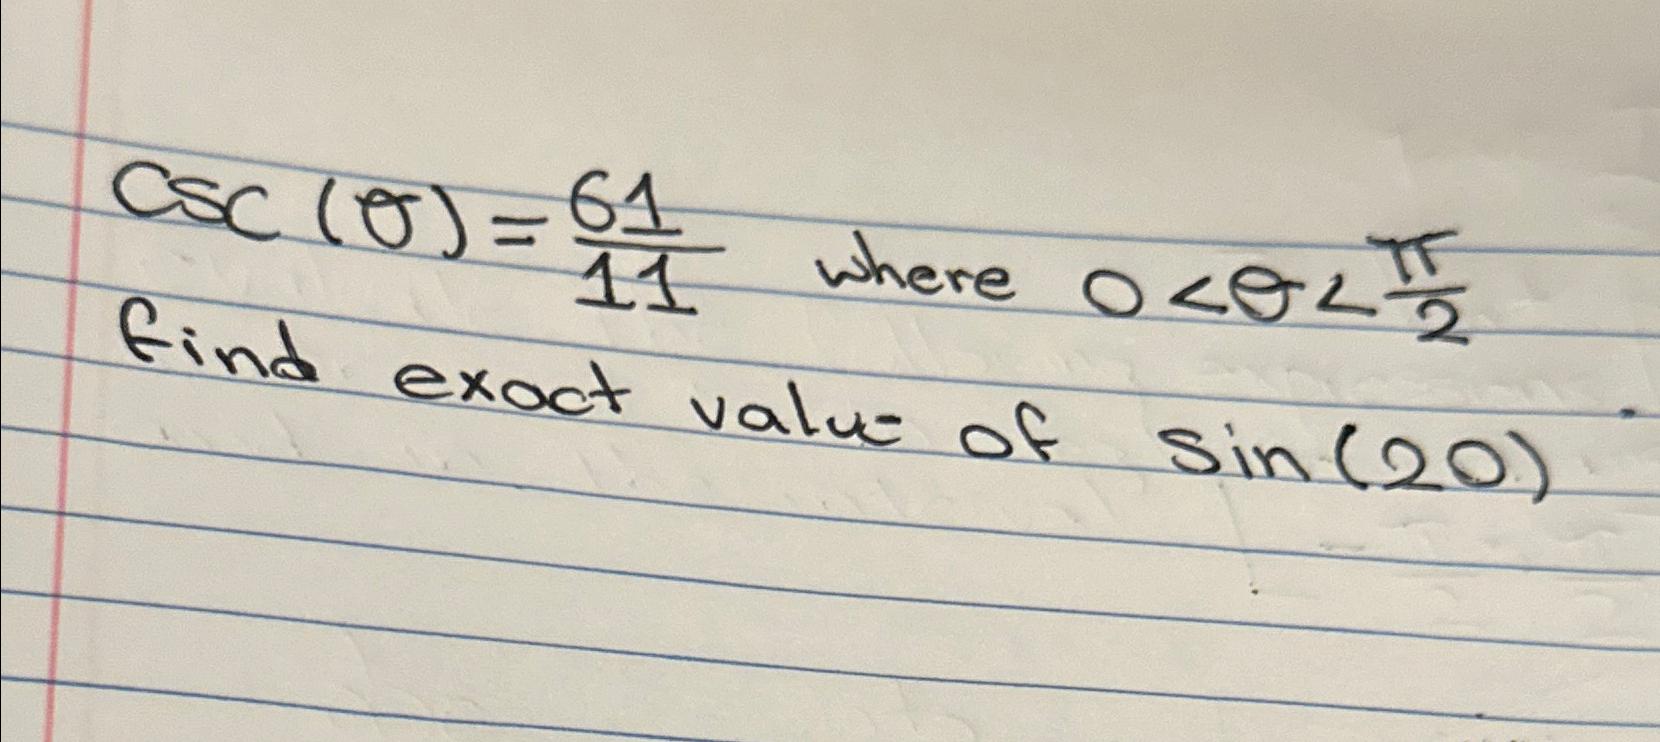 csc(θ) = 61/11 where 0 < θ < π/2
find exact value of sin(20)